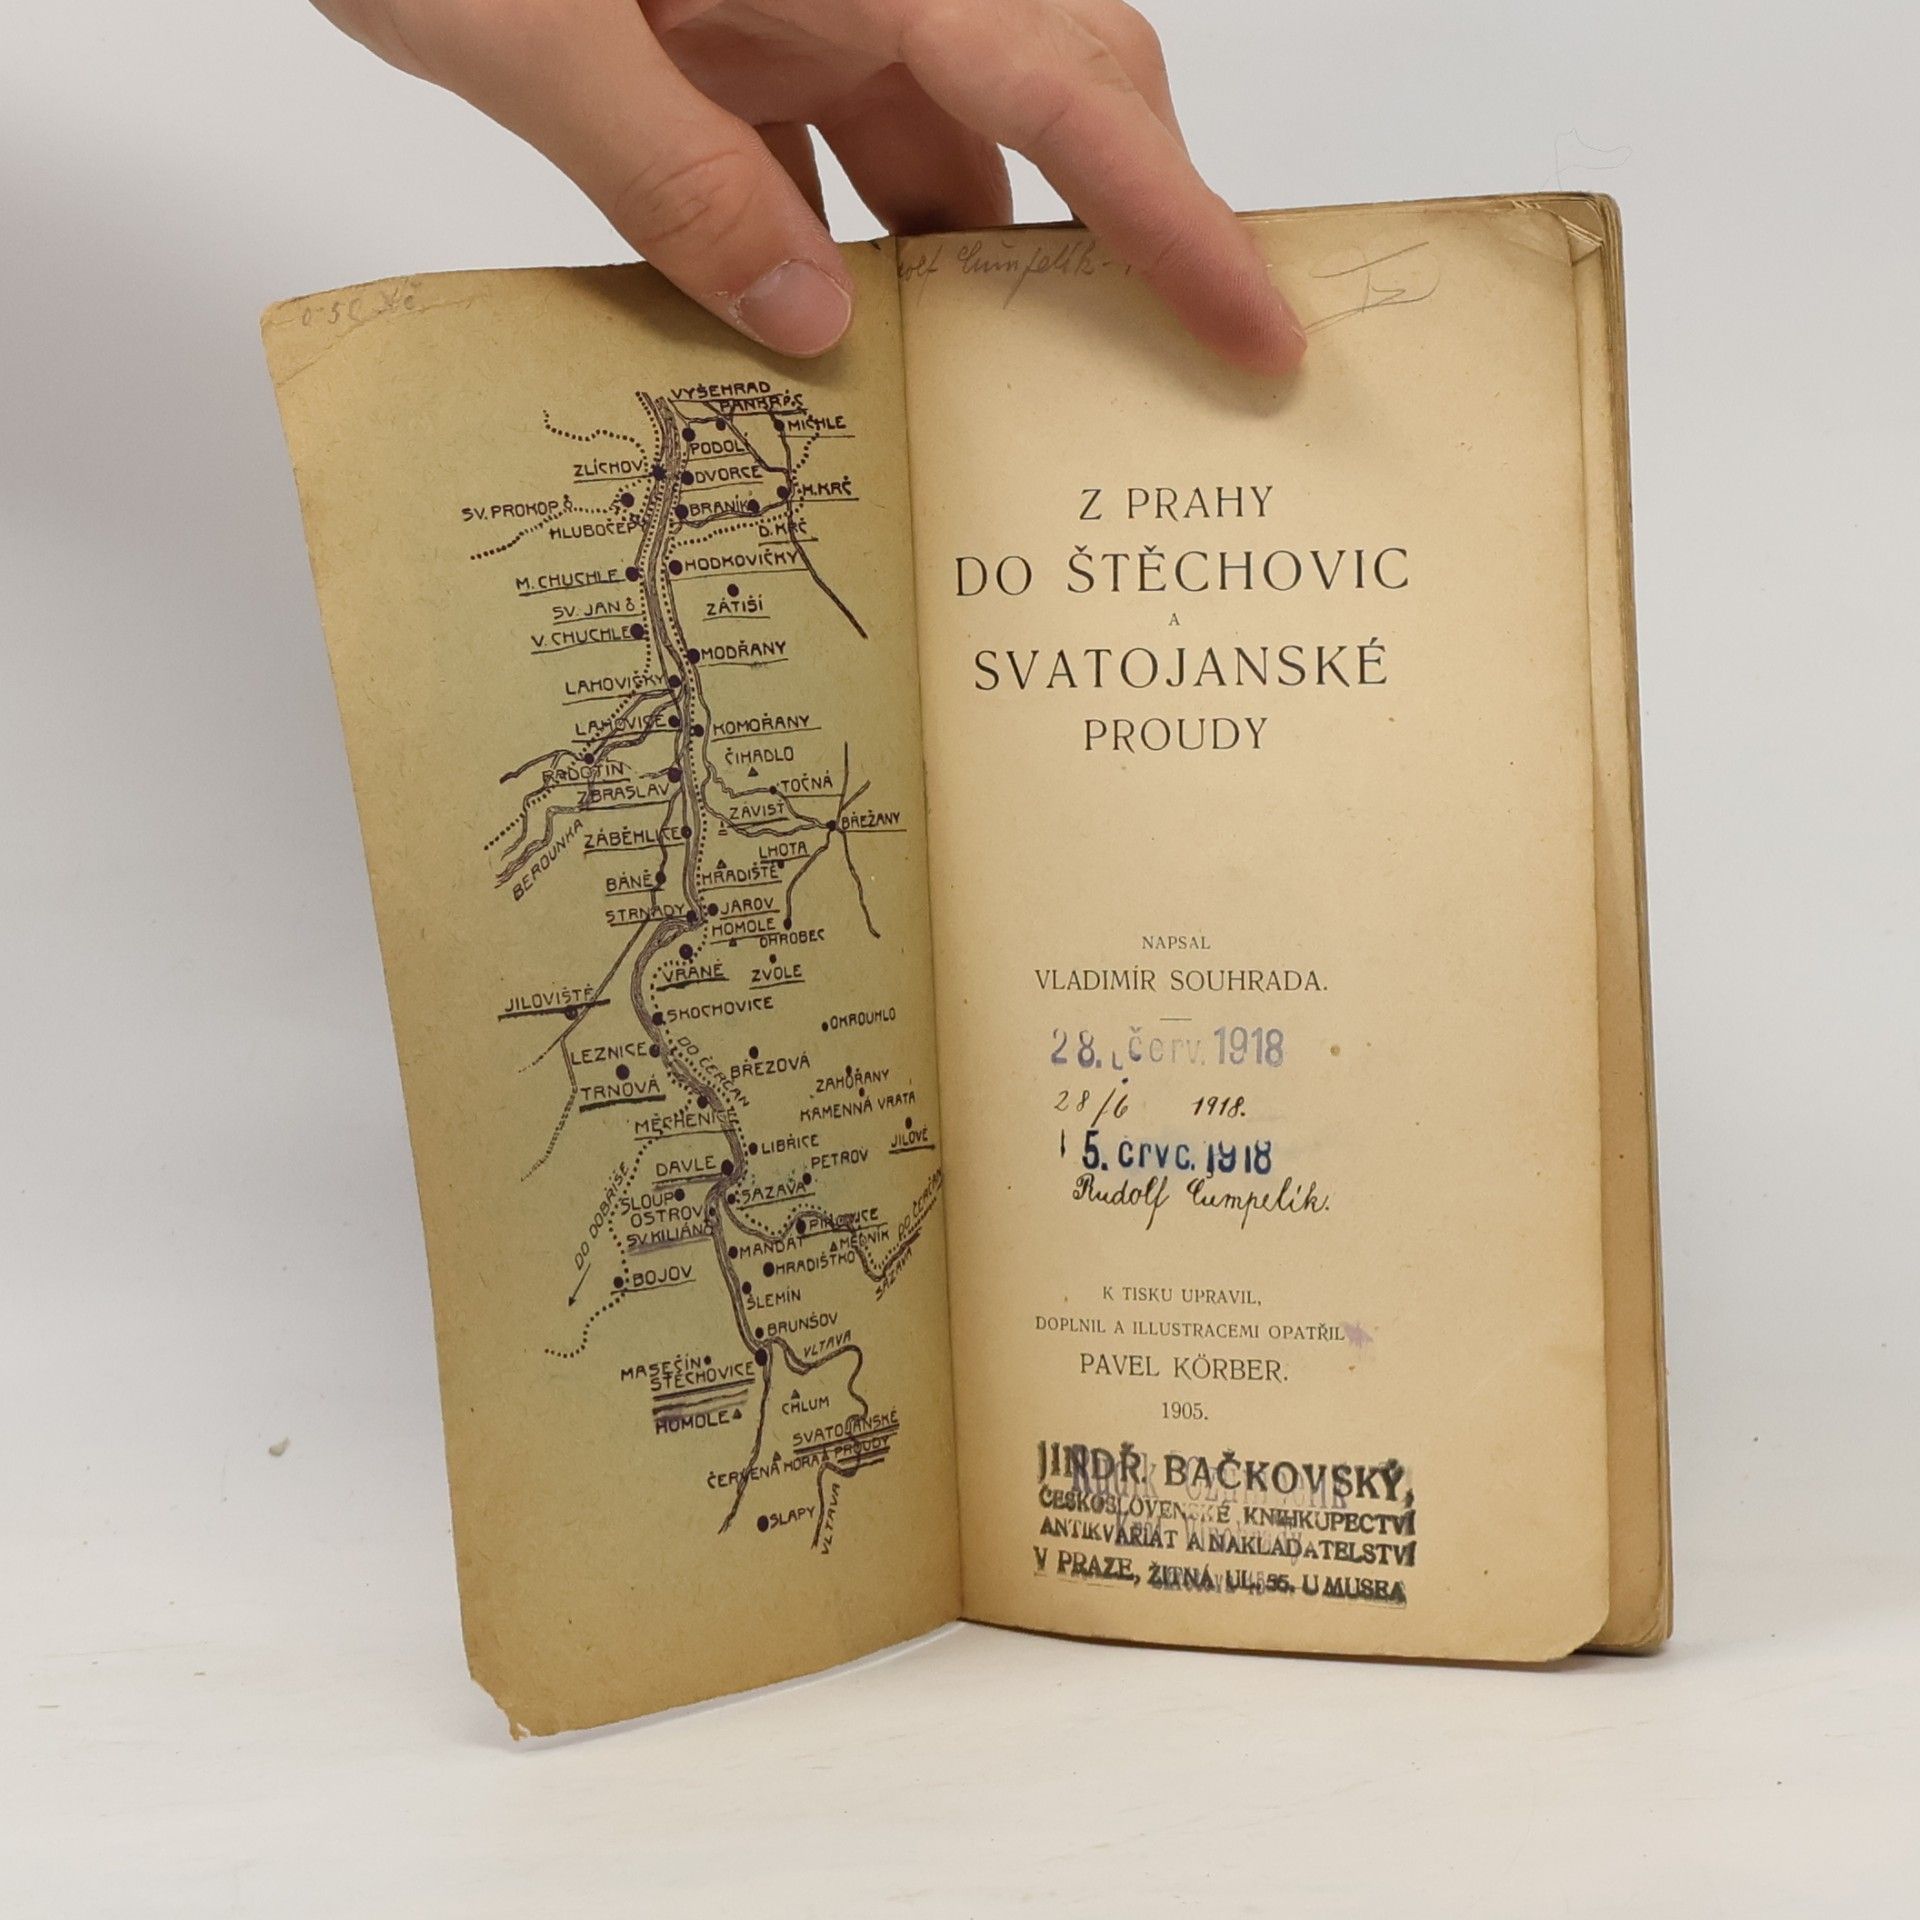 VYŠEHRAD
PANKRÁC
MICHLE
PODOLÍ
ZLÍCHOV
DVORCE
H. KRČ
SV. PROKOP
BRANÍK
HLUBOČEPY
D. KRČ
HODKOVIČKY
M. CHUCHLE
ZÁTIŠÍ
SV. JAN
V. CHUCHLE
MODŘANY
LAHOVIČKY
LAHOVICE
KOMOŘANY
ČIHADLO
RADOTÍN
TOČNÁ
ZBRASLAV
ZÁVIST
BŘEŽANY
ZÁBĚHLICE
BEROUNKA
LHOTA
HRADIŠTĚ
BÁNĚ
STRNADY
JAROV
HOMOLE
OHROBEC
VRANÉ
ZVOLE
JILOVIŠTĚ
SKOCHOVICE
OKROUHLO
LEZNICE
DO ČERČAN
BŘEZOVÁ
TRNOVÁ
ZAHOŘANY
KAMENNÁ VRATA
MĚCHENICE
JILOVÉ
LIBŘICE
DAVLE
PETROV
SLOUP
SÁZAVA
OSTROV
PIKOVICE
SV. KILIÁN
MANDÁT
MEDNÍK
DO ČERČAN
DO DOBŘÍŠE
HRADIŠTKO
SÁZAVA
BOJOV
ŠLEMÍN
BRUNŠOV
VLTAVA
MASEČÍN
ŠTĚCHOVICE
CHLUM
HOMOLE
SVATOJANSKÉ
PROUDY
ČERVENÁ HORA
SLAPY
VLTAVA
Z PRAHY
DO ŠTĚCHOVIC
A
SVATOJANSKÉ
PROUDY
NAPSAL
VLADIMÍR SOUHRADA.
28. červ. 1918
28/6 1918.
5. črvc. 1918
Rudolf Čumpelík.
K TISKU UPRAVIL,
DOPLNIL A ILLUSTRACEMI OPATŘIL
PAVEL KÖRBER.
1905.
JINDŘ. BAČKOVSKÝ,
ČESKOSLOVENSKÉ KNIHKUPECTVÍ
ANTIKVARIÁT A NAKLADATELSTVÍ
V PRAZE, ŽITNÁ UL. 55. U MUSEA